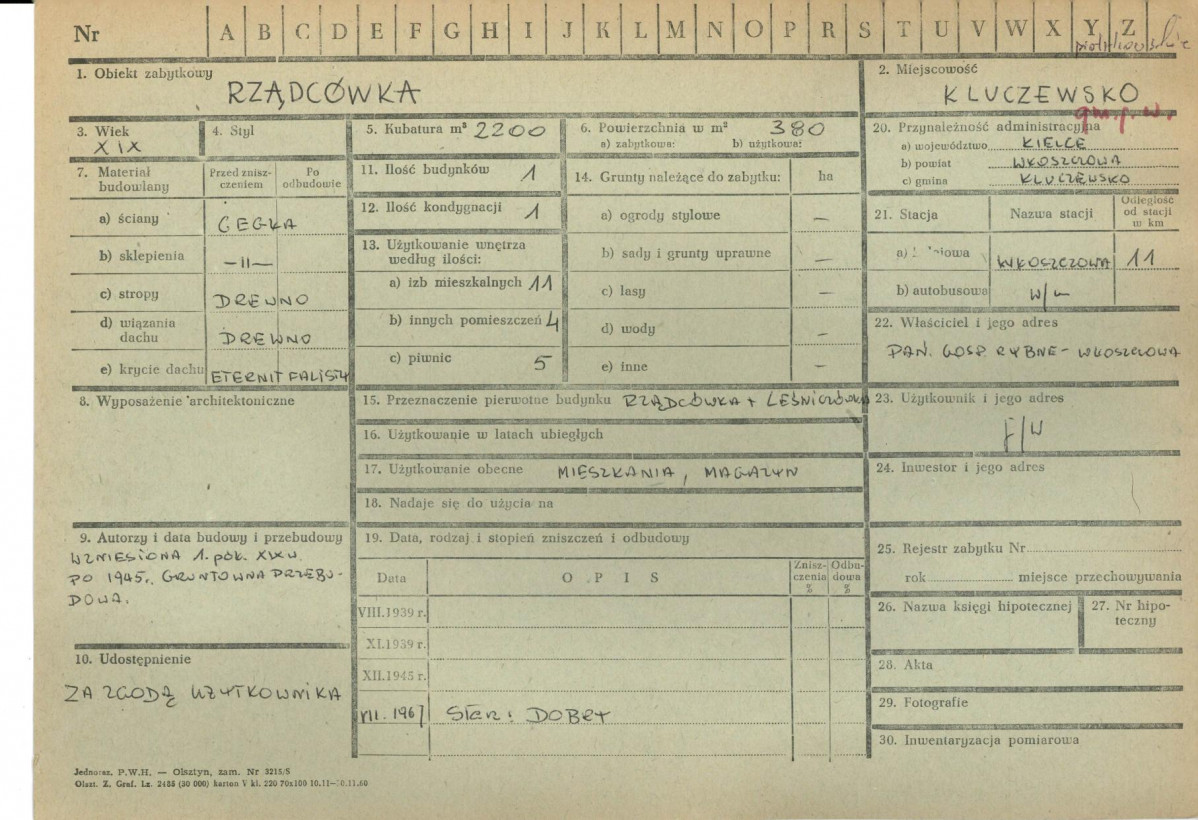 Nr A B C D E F G H I J K L M N O P R S T U V W X Y Z
piotrkowskie
1. Obiekt zabytkowy
RZĄDCÓWKA
2. Miejscowość
KLUCZEWSKO
gm. p. w.
3. Wiek
XIX
4. Styl
5. Kubatura m³ 2200
6. Powierzchnia w m² 380
a) zabytkowa: b) użytkowa:
7. Materiał budowlany
Przed znisz-
czeniem
Po
odbudowie
a) ściany CEGŁA
b) sklepienia —II—
c) stropy DREWNO
d) wiązania
dachu DREWNO
e) krycie dachu ETERNIT FALISTY
8. Wyposażenie architektoniczne
9. Autorzy i data budowy i przebudowy
WZNIESIONA 1. poł. XIX w.
PO 1945. GRUNTOWNA PRZEBU-
DOWA.
10. Udostępnienie
ZA ZGODĄ UŻYTKOWNIKA
11. Ilość budynków 1
12. Ilość kondygnacji 1
13. Użytkowanie wnętrza
według ilości:
a) izb mieszkalnych 11
b) innych pomieszczeń 4
c) piwnic 5
14. Grunty należące do zabytku: ha
a) ogrody stylowe —
b) sady i grunty uprawne —
c) lasy —
d) wody —
e) inne —
15. Przeznaczenie pierwotne budynku RZĄDCÓWKA + LEŚNICZÓWKA
16. Użytkowanie w latach ubiegłych
17. Użytkowanie obecne MIESZKANIA, MAGAZYN
18. Nadaje się do użycia na
19. Data, rodzaj i stopień zniszczeń i odbudowy
Data O P I S
Znisz-
czenia
%
Odbu-
dowa
%
VIII.1939 r.
XI.1939 r.
XII.1945 r.
VII. 1967 STAN: DOBRY
20. Przynależność administracyjna
a) województwo KIELCE
b) powiat WŁOSZCZOWA
c) gmina KLUCZEWSKO
21. Stacja Nazwa stacji
Odległość
od stacji
w km
a) WŁOSZCZOWA 11
b) autobusowa w/m
22. Właściciel i jego adres
PAŃ. GOSP. RYBNE - WŁOSZCZOWA
23. Użytkownik i jego adres
j/w
24. Inwestor i jego adres
25. Rejestr zabytku Nr
rok miejsce przechowywania
26. Nazwa księgi hipotecznej
27. Nr hipo-
teczny
28. Akta
29. Fotografie
30. Inwentaryzacja pomiarowa
Jednoraz. P.W.H. — Olsztyn, zam. Nr 3215/5
Olszt. Z. Graf. Lz. 2488 (30 000) karton V kl. 220 70x100 10.11—10.11.60